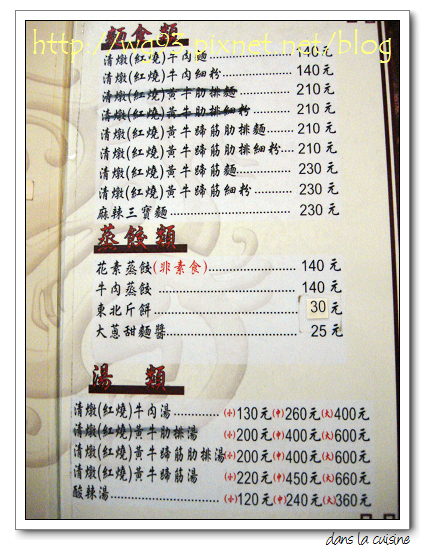 http://wa93.pixnet.net/blog
麵食類
清燉(紅燒)牛肉麵 140元
清燉(紅燒)牛肉細粉 140元
清燉(紅燒)黃牛肋排麵 210元
清燉(紅燒)黃牛肋排細粉 210元
清燉(紅燒)黃牛蹄筋肋排麵 210元
清燉(紅燒)黃牛蹄筋肋排細粉 210元
清燉(紅燒)黃牛蹄筋麵 230元
清燉(紅燒)黃牛蹄筋細粉 230元
麻辣三寶麵 230元
蒸餃類
花素蒸餃(非素食) 140元
牛肉蒸餃 140元
東北斤餅 30元
大蔥甜麵醬 25元
湯類
清燉(紅燒)牛肉湯 (小)130元(中)260元(大)400元
清燉(紅燒)黃牛肋排湯 (小)200元(中)400元(大)600元
清燉(紅燒)黃牛蹄筋肋排湯 (小)200元(中)400元(大)600元
清燉(紅燒)黃牛蹄筋湯 (小)220元(中)450元(大)660元
酸辣湯 (小)120元(中)240元(大)360元
dans la cuisine